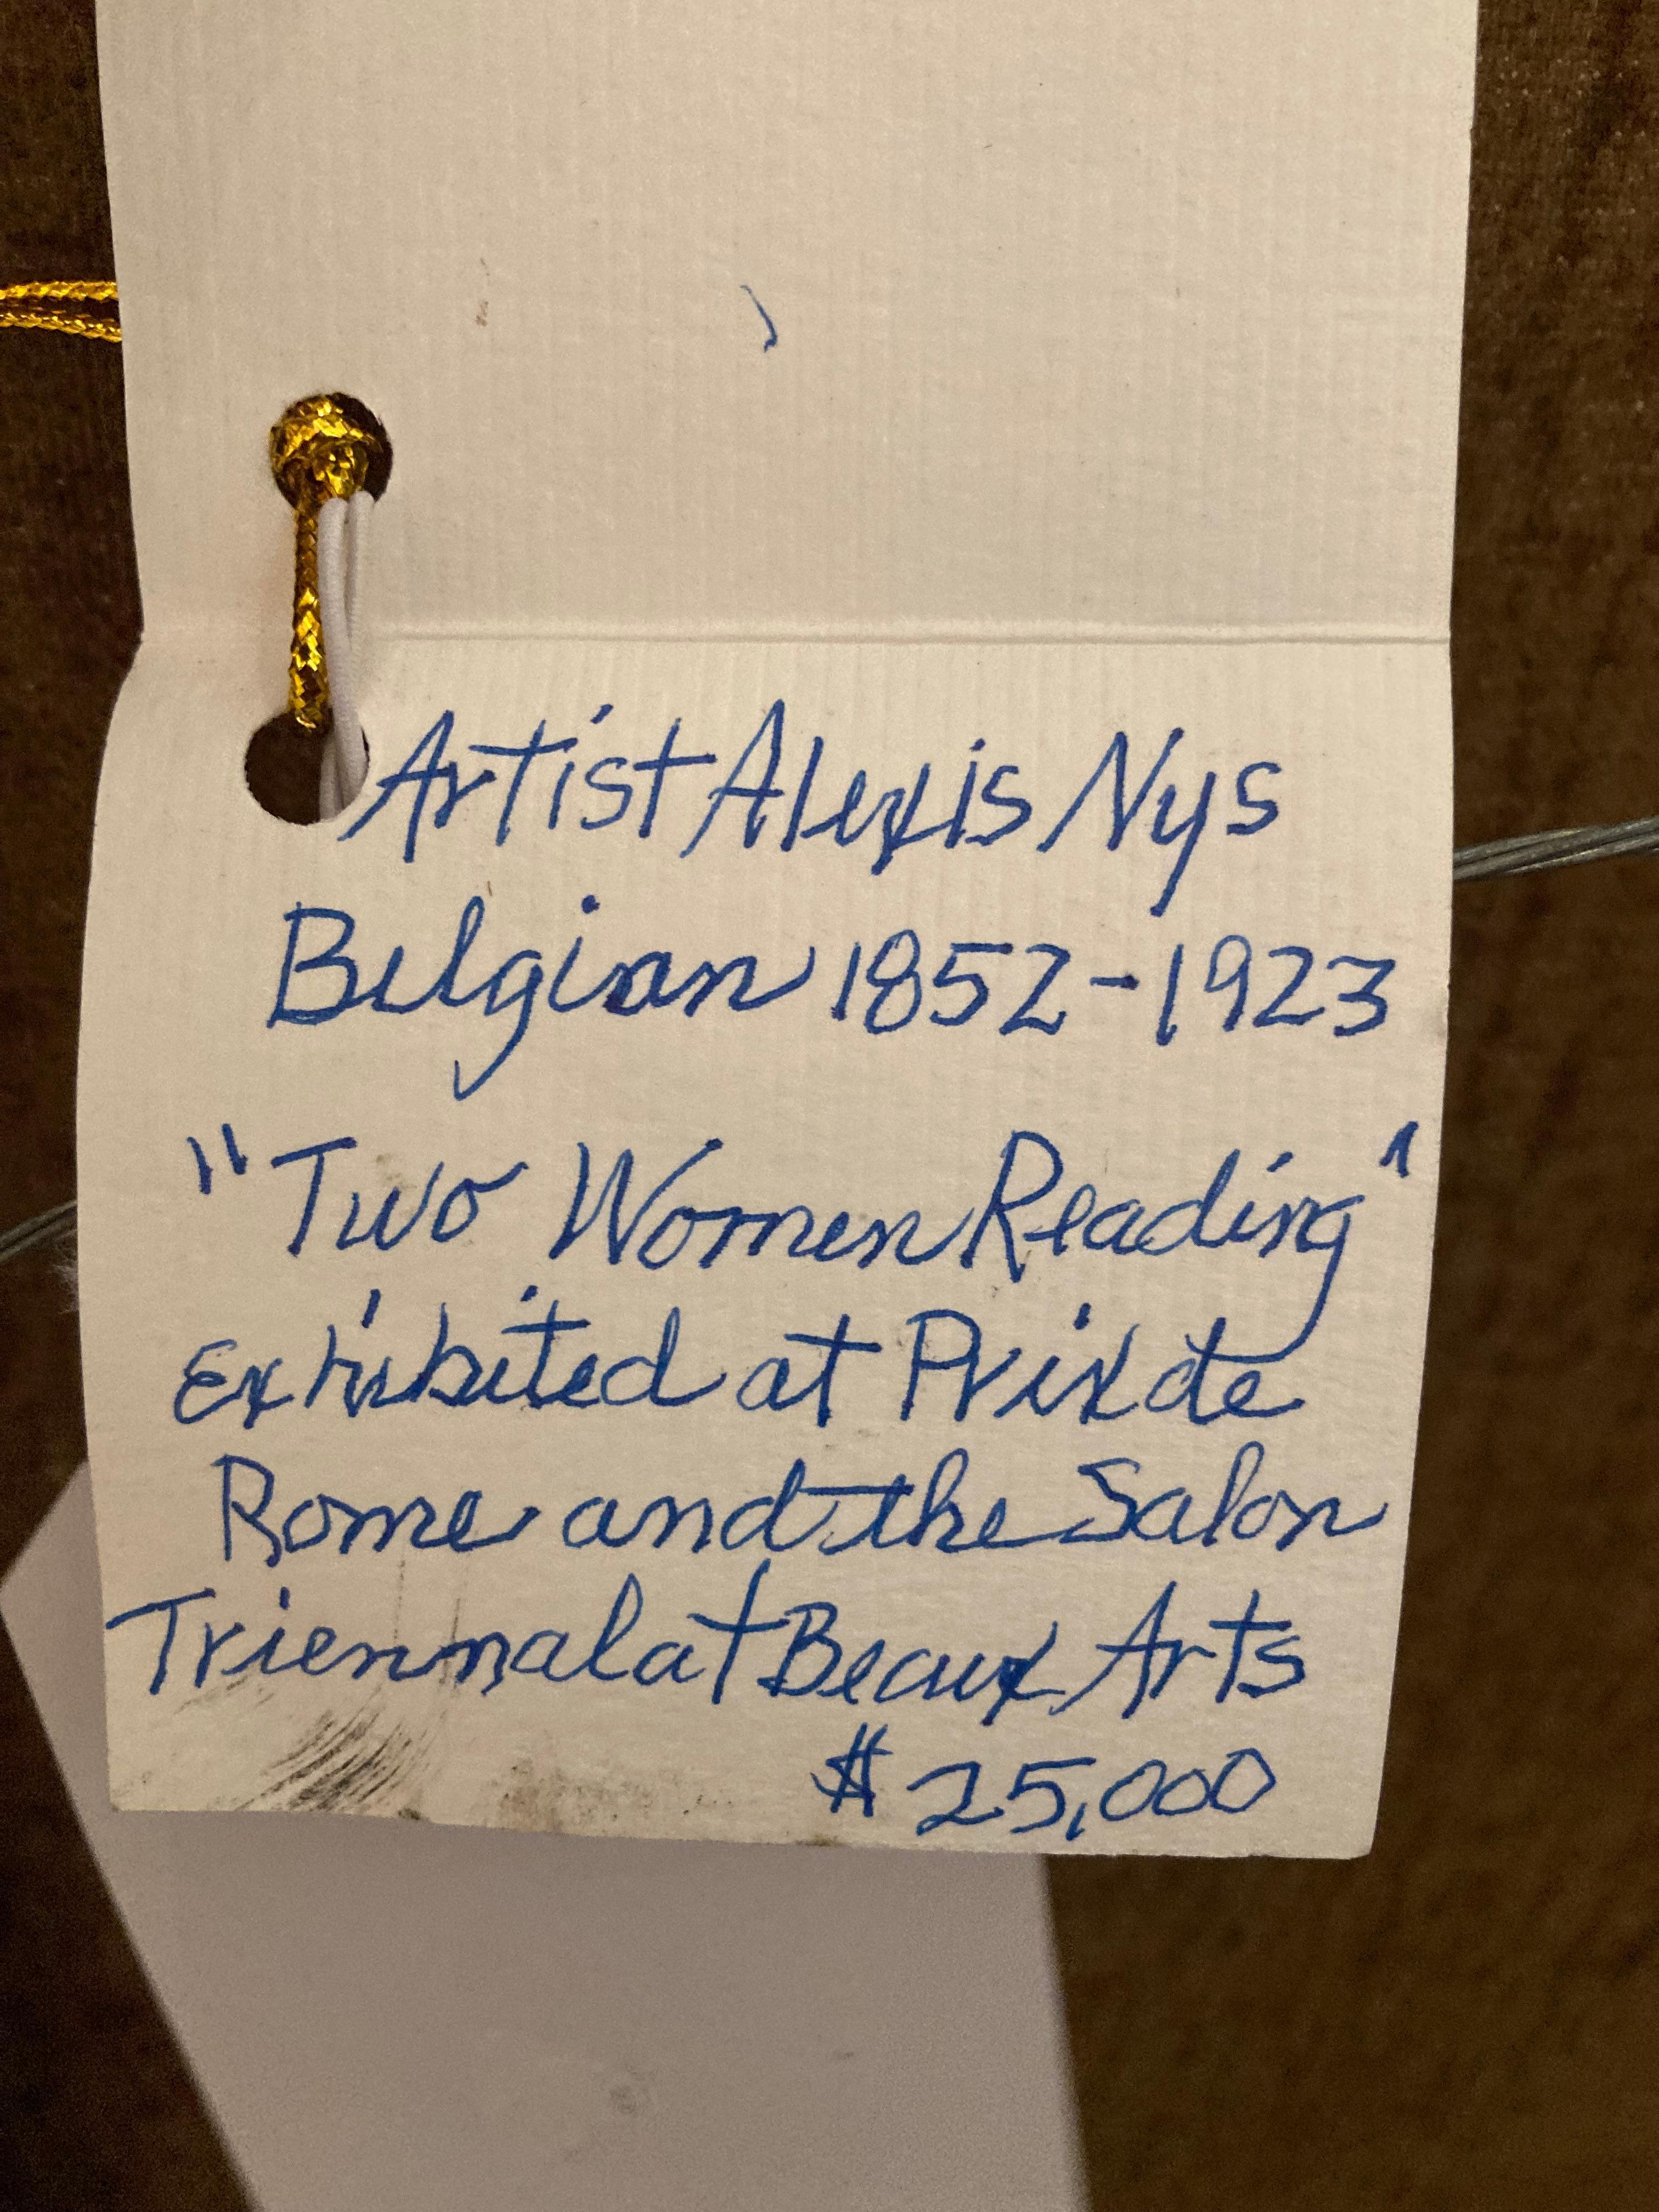 Artist Alexis Nys
Belgian 1852-1923
"Two Women Reading"
Exhibited at Prix de
Rome and the Salon
Triennal at Beaux Arts
$25,000